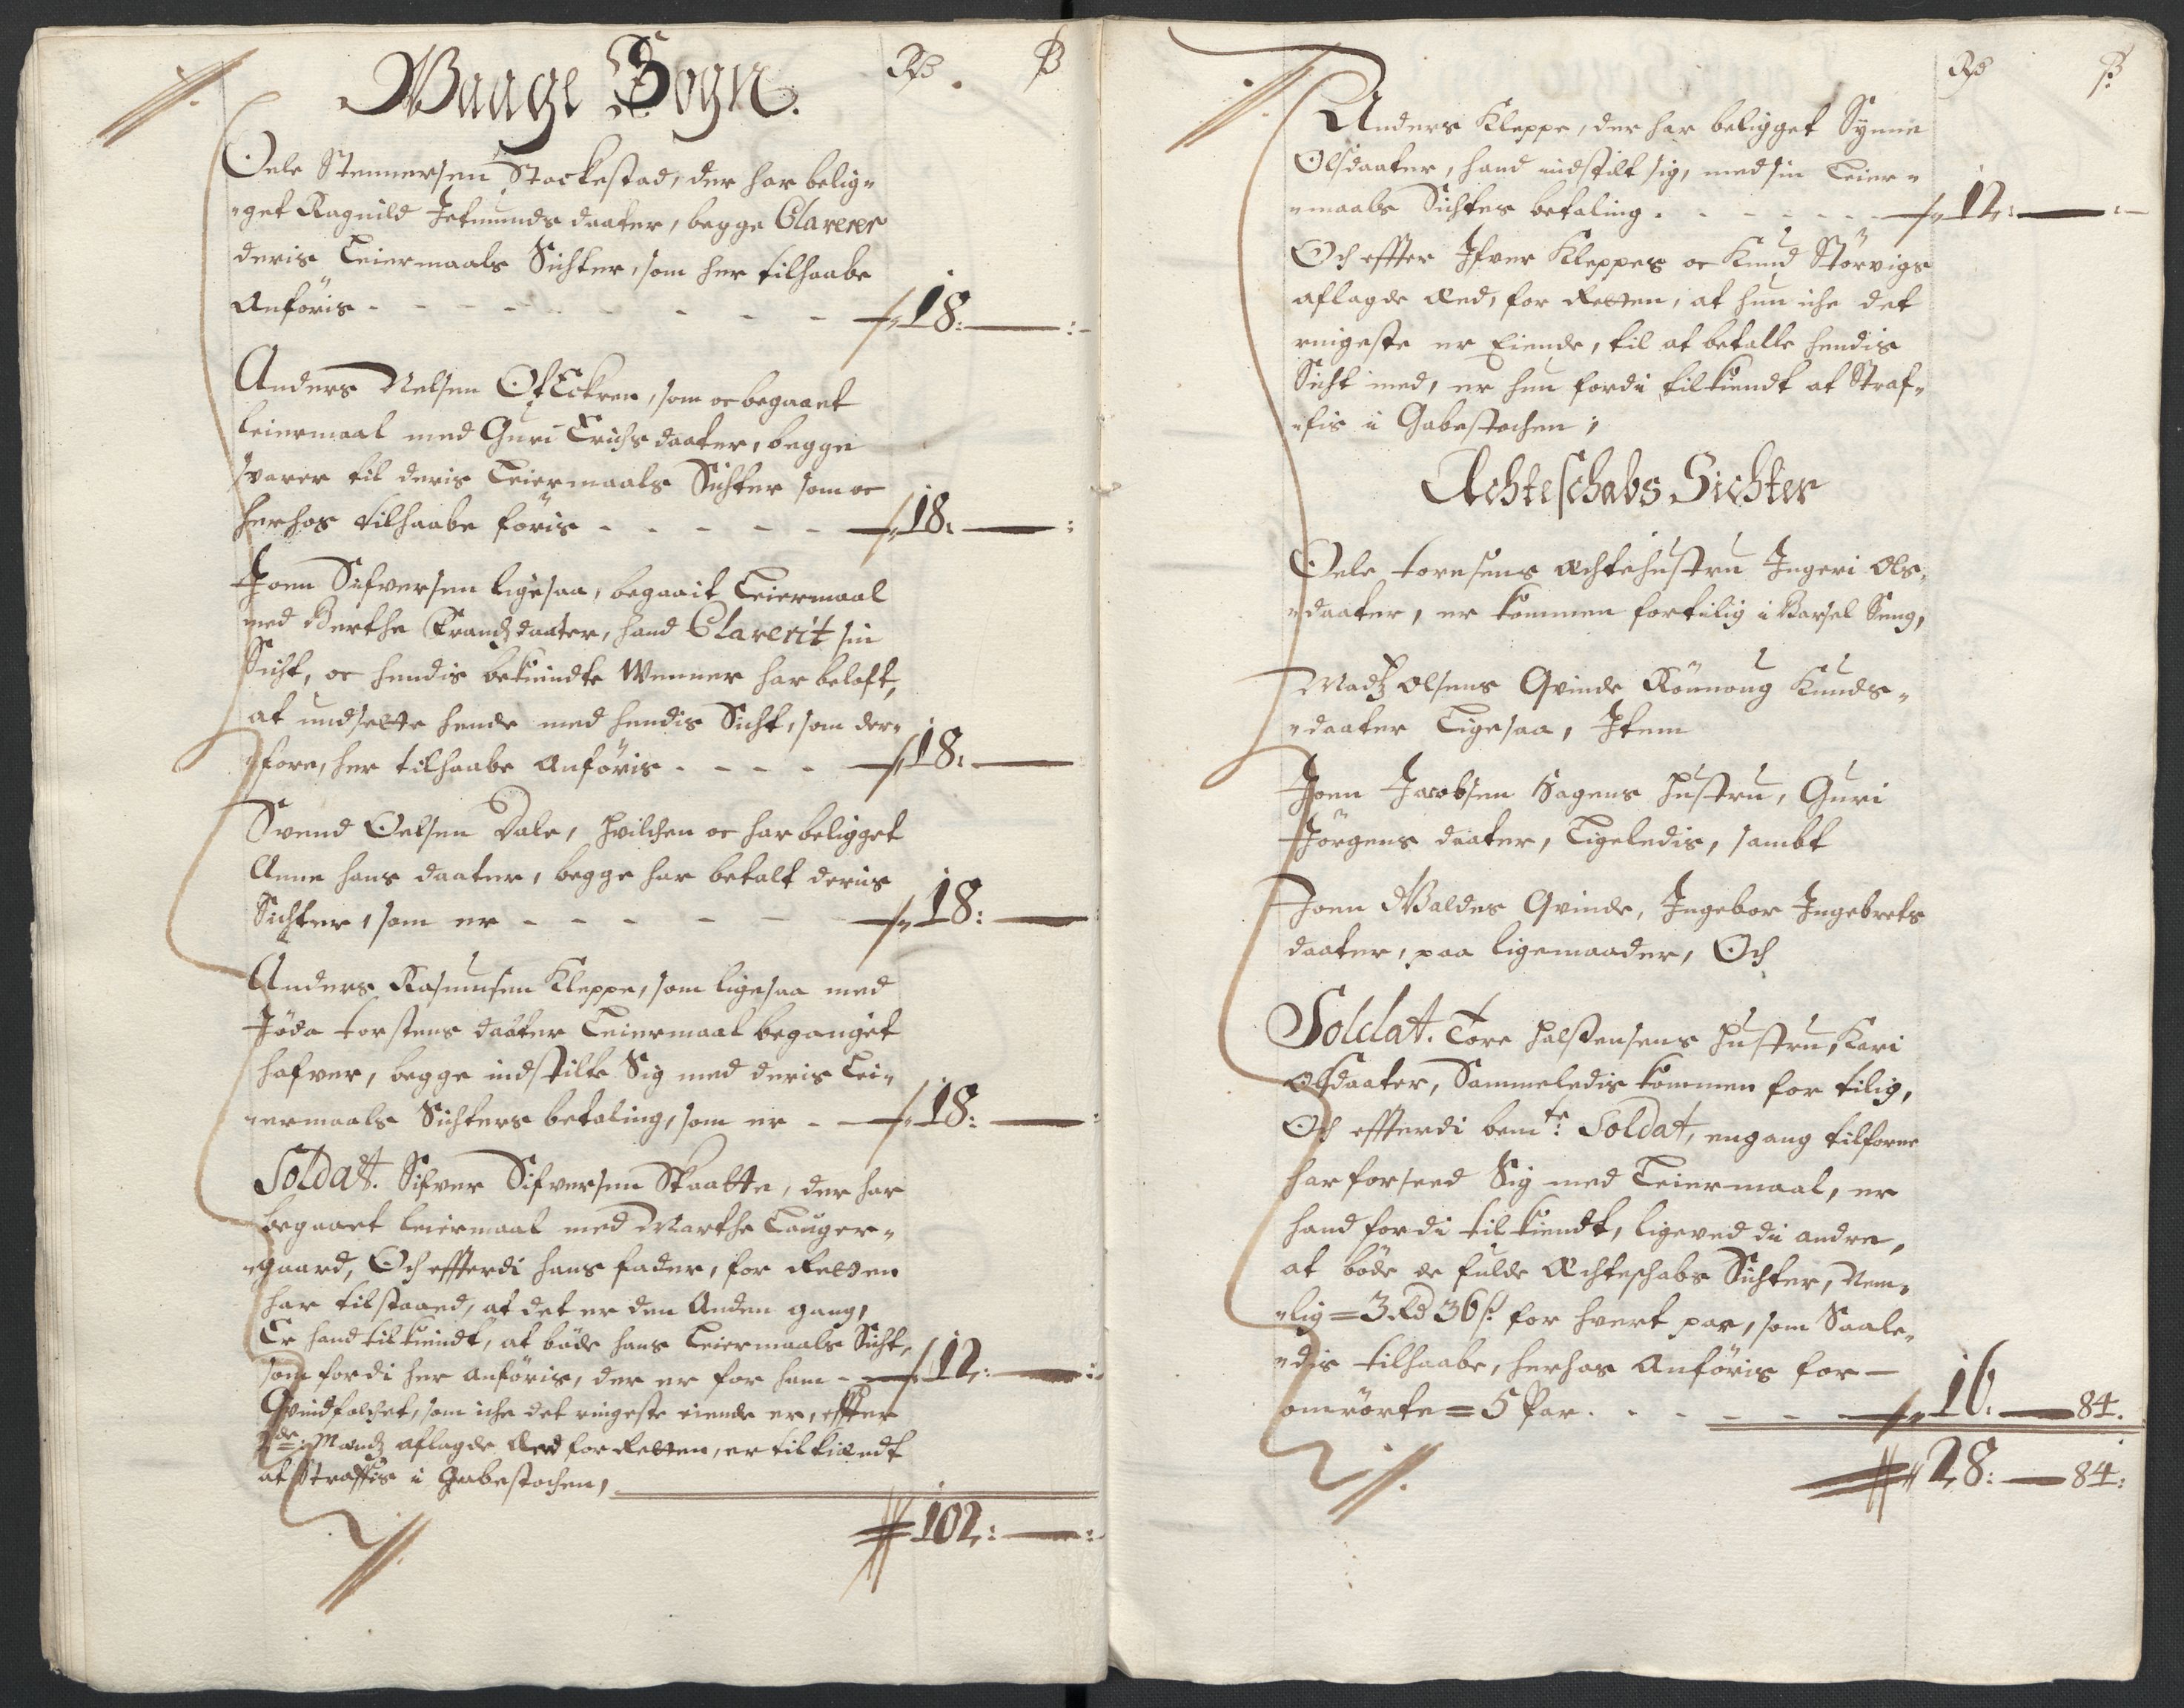 Waage Sogn.
Rd ß
Oele Stennersen Stockestad, der har belig-
get Ragnild Jetmundsdaater, begge Clarerer
deris Leiermaals Sichter, som her tilhaabe
Anföris - - - - - - - - - 18: — :
Anders Nelsen, som oc begaaet
leiermaal med Guri Erichsdaater, begge
svarer til deris Leiermaals Sichter som oc
herhos tilhaabe föris - - - - - 18: — :
Joen Sifversen ligesaa, begaait Leiermaal
med Berthe Frandzdaater, hand Clarerit sin
Sicht, oc hendis bekiendte Wenner har beloft,
at undsette hende med hendis Sicht, som der-
fore, her tilhaabe Anföris - - - - 18: —
Svend Oelsen Dale, hvilchen oc har beligget
Anne Hansdaater, begge har betalt deris
Sichter, som er - - - - - 18: —
Anders Rasmusen Kleppe, som ligesaa med
Jöda torstens daater Leiermaal beganget
hafver, begge indstilte Sig med deris Lei-
ermaals Sichters betaling, som er - - 18: — :
Soldat. Sifver Sifversen Skaatte, der har
begaaet leiermaal med Marthe Lauger-
gaard, Och effterdi hans fader, for Retten
har tilstaaed, at det er den Anden gang,
Er hand tilkiendt, at böde hans Leiermaals Sicht,
som fordi her anföris, der er for ham - - 12: — :
Qvindfolchet, som iche det ringeste eiende er, effter
2de Mendz aflagde Æed for Retten, er tilkiendt
at Straffis i Gabestochen,
102: — :
Rd ß
Anders Kleppe, der har beligget Synne
Olsdaater, hand indstilt sig, med sin Leier-
maals Sichtes betaling . - - - - - 12: — : —
Och effter Ifver Kleppes oc Knud Störvigs
aflagde Æed, for Retten, at hun iche det
ringeste er Eiende, til at betalle hendis
Sicht med, er hun fordi tilkiendt at Straf-
fis i Gabestochen;
Achteschabs Sichter
Oele toresens Æchtehustru Ingeri Ols-
daater, er kommen fortilig i Barsel Seng,
Madz olsens Qvinde Rönnoug Knuds-
daater Ligesaa, Item
Joen Jacobsen Hagens hustru, Guri
Jörgens daater, Ligeledis, sambt
Joen Waldes Qvinde, Ingebor Ingebrets
daater, paa ligemaader, Och
Soldat. Tore Halstensens hustru, Kari
olsdaater, Sammeledis kommen for tilig,
Och effterdi bemte: Soldat, engang tilforne
har forseed Sig med Leiermaal, er
hand fordi tilkiendt, ligeved di andre,
at böde de fulde Æchteschabs Sichter, Nem-
lig = 3 Rd 36 ß. for hvert par, som Saale-
dis tilhaabe, herhos Anföris for —
omrörte = 5 Par . - - - - - 16: — 84.
28: — 84: